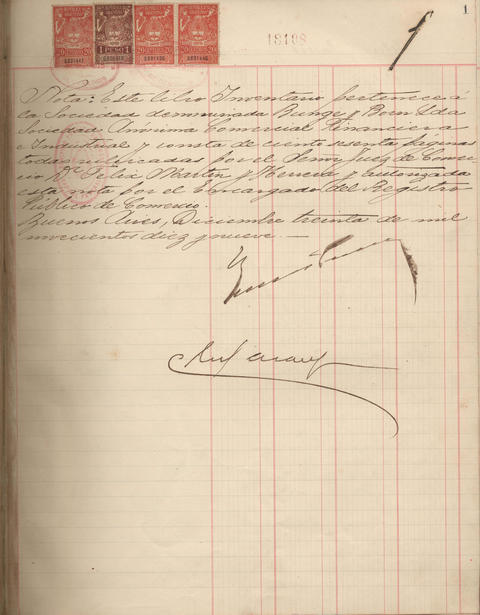 1
18198
1 PESO 1
Nota: Este libro Inventario pertenece á
la Sociedad denominada Bunge y Born Lda
Sociedad Anónima Comercial Financiera
e Industrial y consta de ciento sesenta páginas
todas rubricadas por el Señor Juez de Comer-
cio Dr. Felix Martin y Herrera y autorizada
esta nota por el Encargado del Registro
Público de Comercio.
Buenos Aires, Diciembre treinta de mil
novecientos diez y nueve —